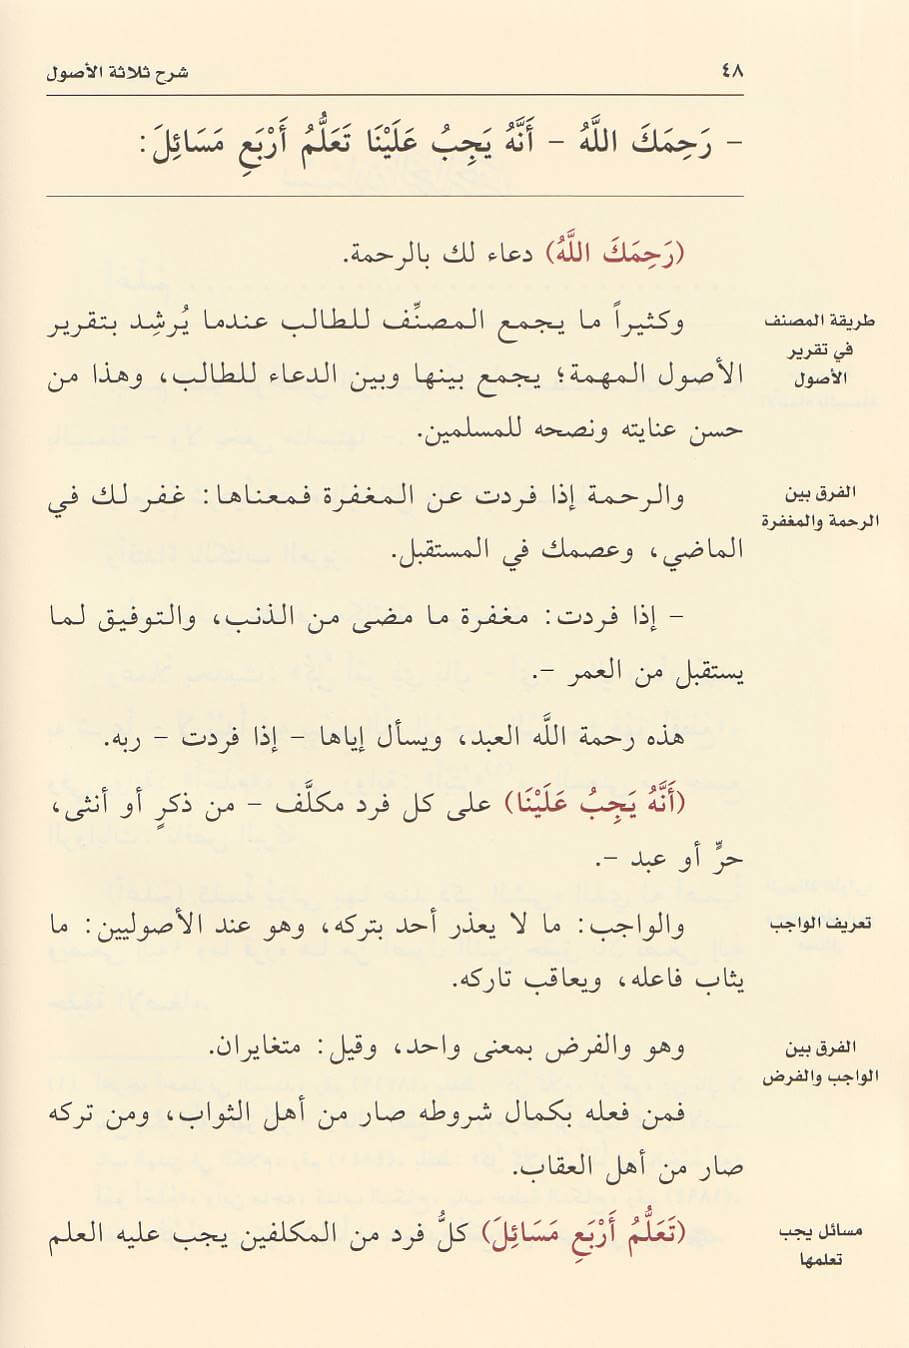 ٤٨
شرح ثلاثة الأصول
- رَحِمَكَ اللَّهُ - أَنَّهُ يَجِبُ عَلَيْنَا تَعَلُّمُ أَرْبَعِ مَسَائِلَ:
(رَحِمَكَ اللَّهُ) دعاء لك بالرحمة.
طريقة المصنف
في تقرير
الأصول
وكثيراً ما يجمع المصنِّف للطالب عندما يُرشِد بتقرير
الأصول المهمة؛ يجمع بينها وبين الدعاء للطالب، وهذا من
حسن عنايته ونصحه للمسلمين.
الفرق بين
الرحمة والمغفرة
والرحمة إذا فردت عن المغفرة فمعناها: غفر لك في
الماضي، وعصمك في المستقبل.
- إذا فردت: مغفرة ما مضى من الذنب، والتوفيق لما
يستقبل من العمر -.
هذه رحمة اللَّه العبد، ويسأل إياها - إذا فردت - ربه.
(أَنَّهُ يَجِبُ عَلَيْنَا) على كل فرد مكلَّف - من ذكرٍ أو أنثى،
حرٍّ أو عبد -.
تعريف الواجب
والواجب: ما لا يعذر أحد بتركه، وهو عند الأصوليين: ما
يثاب فاعله، ويعاقب تاركه.
الفرق بين
الواجب والفرض
وهو والفرض بمعنى واحد، وقيل: متغايران.
فمن فعله بكمال شروطه صار من أهل الثواب، ومن تركه
صار من أهل العقاب.
مسائل يجب
تعلمها
(تَعَلُّمُ أَرْبَعِ مَسَائِلَ) كلُّ فرد من المكلفين يجب عليه العلم